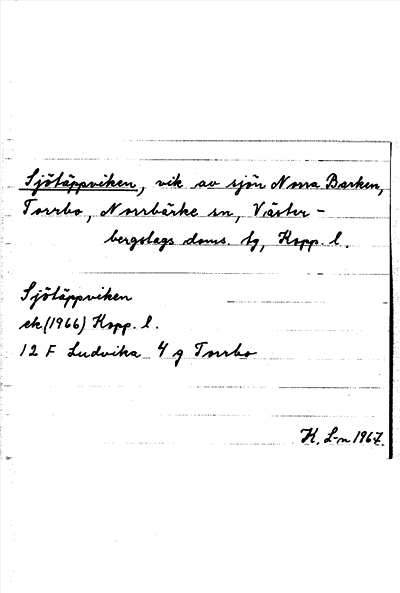 Sjötäppviken, vik av sjön Norra Barken,
Torrbo, Norrbärke sn, Väster-
bergslags doms. tg, Kopp. l.
Sjötäppviken
ek (1966) Kopp. l.
12 F Ludvika 4 g Torrbo
K. L-n 1967.